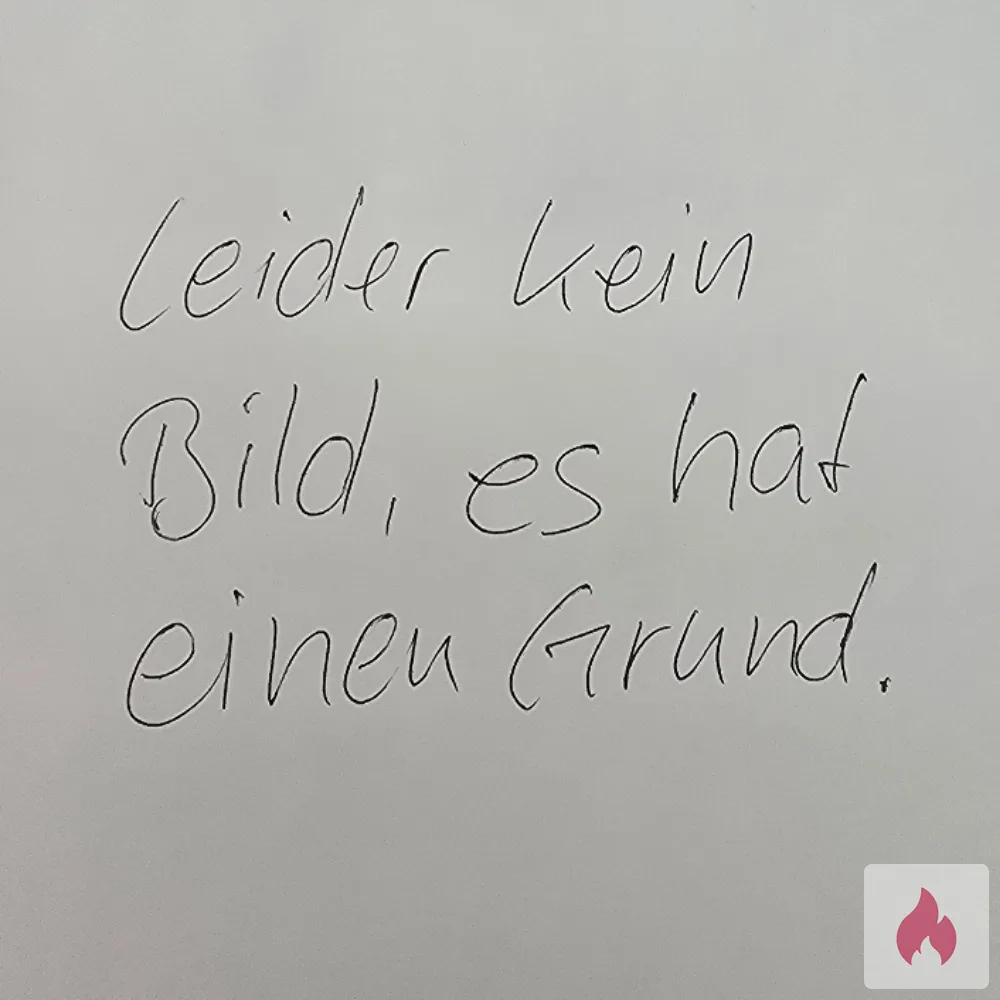 Leider kein
Bild, es hat
einen Grund.